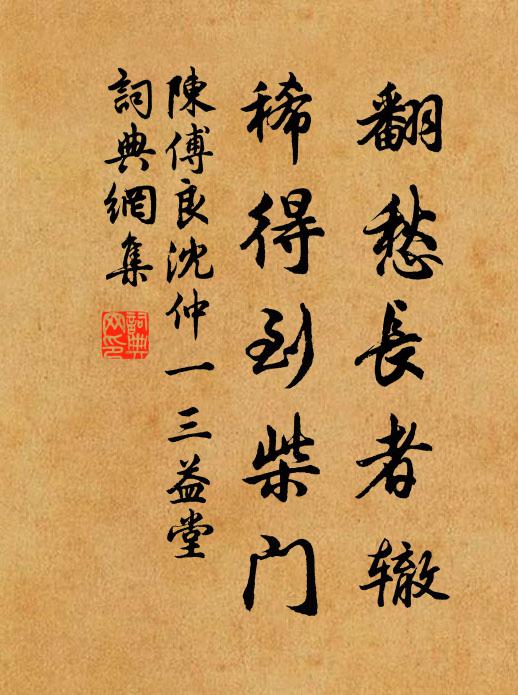 翻愁長者辙
稀得到柴门
陳傅良沈仲一三益堂
詞典網集